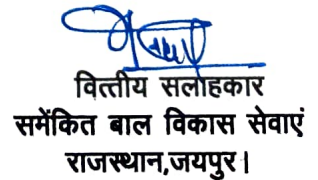 वित्तीय सलाहकार
समेंकित बाल विकास सेवाएं
राजस्थान,जयपुर।